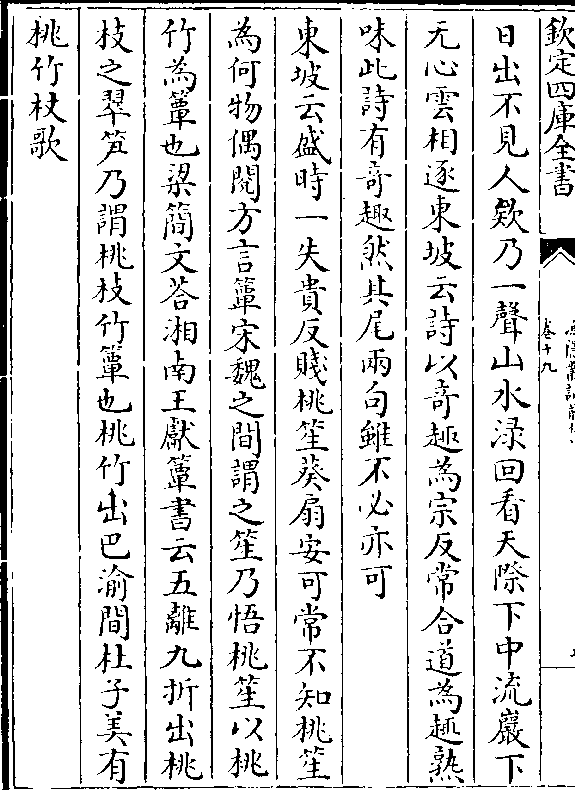 欽定四庫全書
卷十九
日出不見人欸乃一聲山水渌回看天際下中流巖下
无心雲相逐東坡云詩以竒趣為宗反常合道為趣熟
味此詩有竒趣然其尾兩句雖不必亦可
東坡云盛時一失貴反賤桃笙葵扇安可常不知桃笙
為何物偶閱方言簟宋魏之間謂之笙乃悟桃笙以桃
竹為簟也梁簡文荅湘南王獻簟書云五離九折出桃
枝之翠笋乃謂桃枝竹簟也桃竹出巴渝間杜子美有
桃竹杖歌